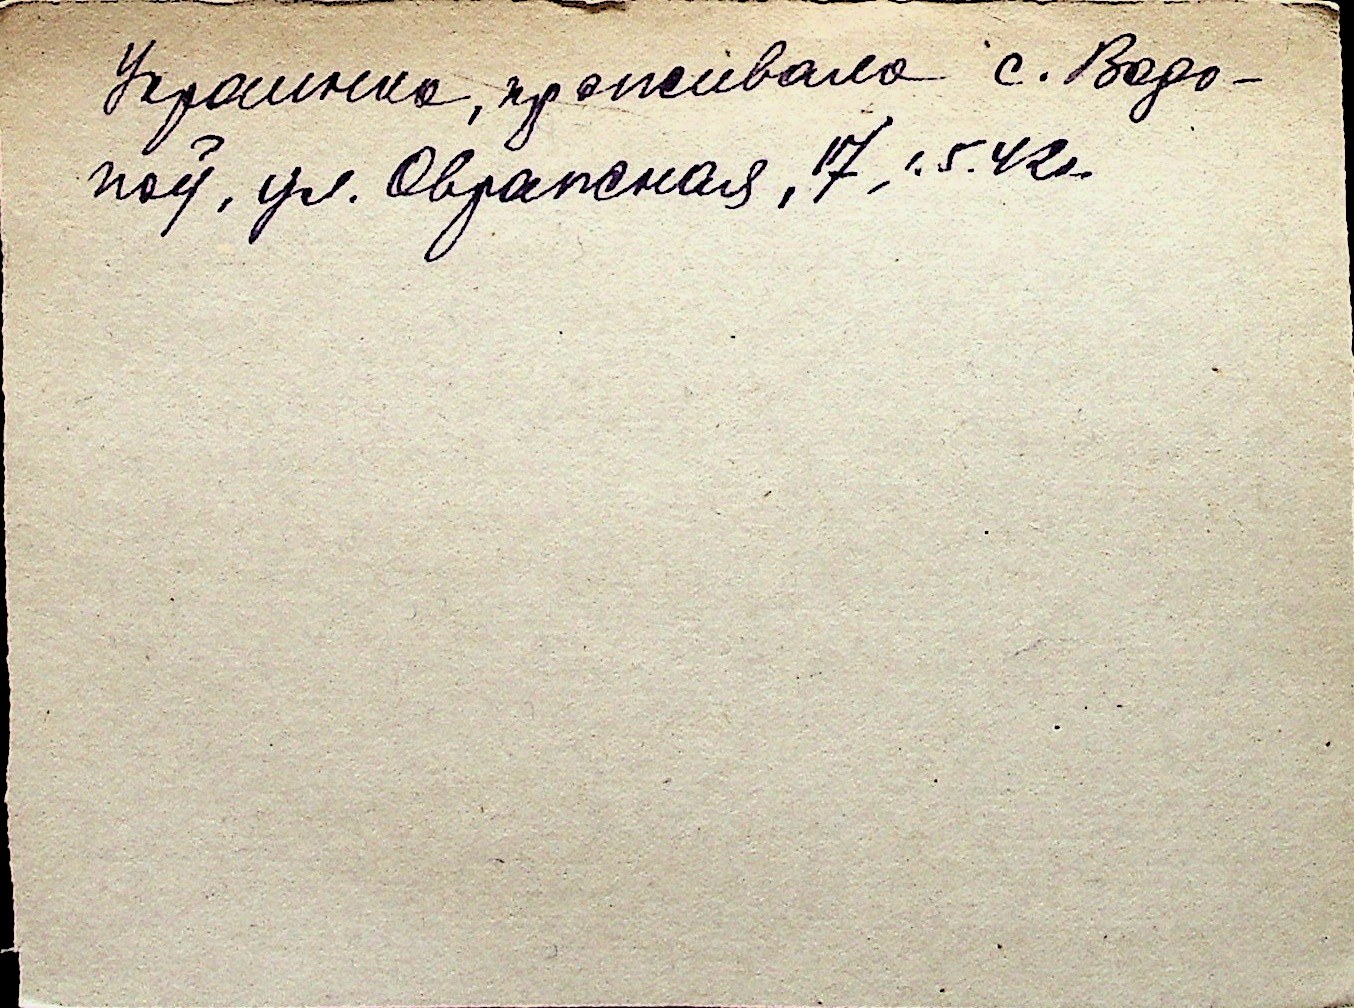 Украинка, проживала с. Водо-
пой, ул. Овражная, 17, 1.5.42г.